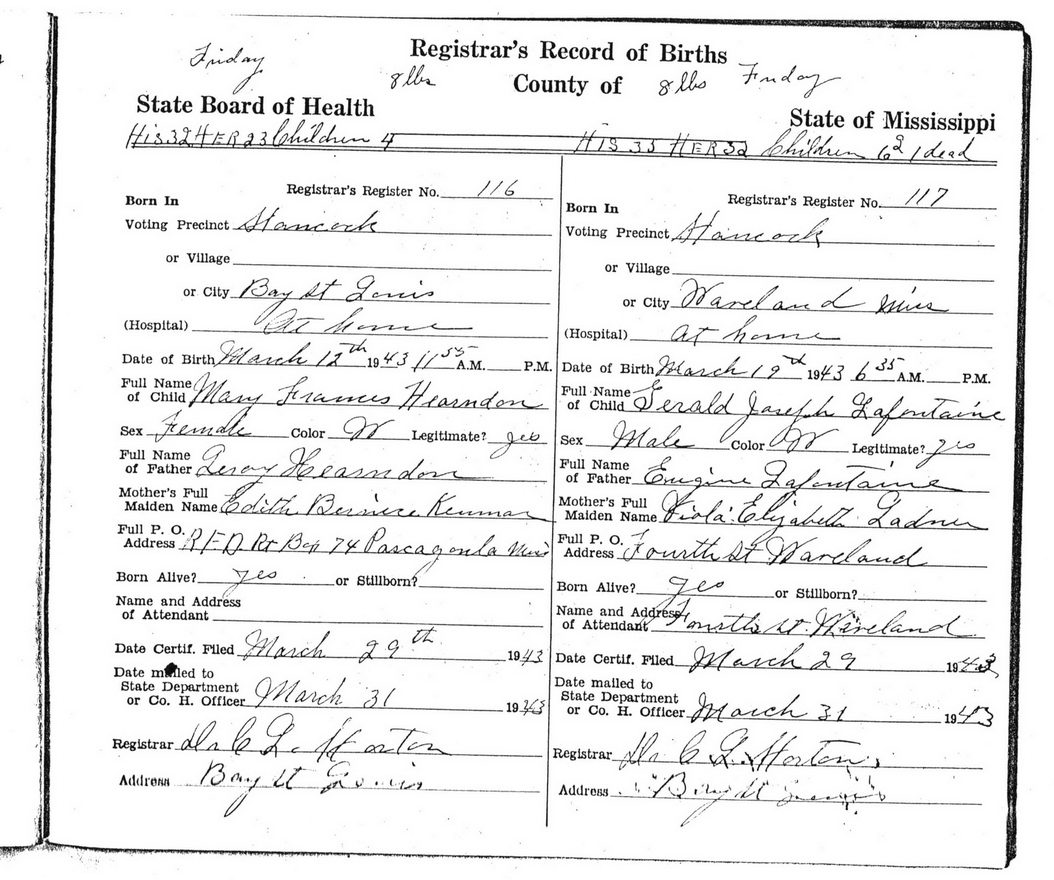 Registrar's Record of Births
Friday 8 lbs County of 8 lbs Friday
State Board of Health
State of Mississippi
HIS 32 HER 23 Children 4
HIS 35 HER 32 Children 6 1 dead
Registrar's Register No. 116
Born In
Voting Precinct Hancock
or Village
or City Bay St Louis
(Hospital) At home
Date of Birth March 12th 1943 11 55 A.M. P.M.
Full Name
of Child Mary Frances Hearndon
Sex Female Color W Legitimate? yes
Full Name
of Father Leroy Hearndon
Mother's Full
Maiden Name Edith Bernice
Full P. O.
Address R F D Rt Box 74 Pascagoula Miss
Born Alive? yes or Stillborn?
Name and Address
of Attendant
Date Certif. Filed March 29th 1943
Date mailed to
State Department
or Co. H. Officer March 31 1943
Registrar Dr C L Horton
Address Bay St Louis
Registrar's Register No. 117
Born In
Voting Precinct Hancock
or Village
or City Waveland Miss
(Hospital) At home
Date of Birth March 19 1943 6 35 A.M. P.M.
Full Name
of Child Gerald Joseph Lafontaine
Sex Male Color W Legitimate? yes
Full Name
of Father Enigine Lafontaine
Mother's Full
Maiden Name Viola Elizabeth Ladner
Full P. O.
Address Fourth St Waveland
Born Alive? yes or Stillborn?
Name and Address
of Attendant Fourth St Waveland
Date Certif. Filed March 29 1943
Date mailed to
State Department
or Co. H. Officer March 31 1943
Registrar Dr C L Horton
Address Bay St Louis